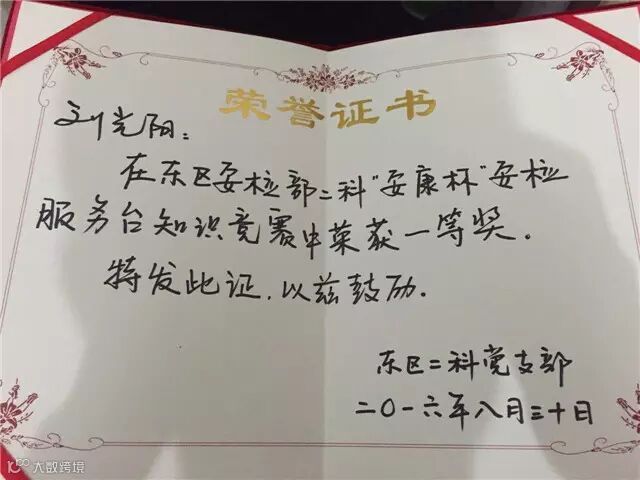 荣誉证书
刘光阳：
在东区安检部二科“安康杯”安检
服务台知识竞赛中荣获一等奖。
特发此证，以兹鼓励。
东区二科党支部
二〇一六年八月三十日
大数跨境